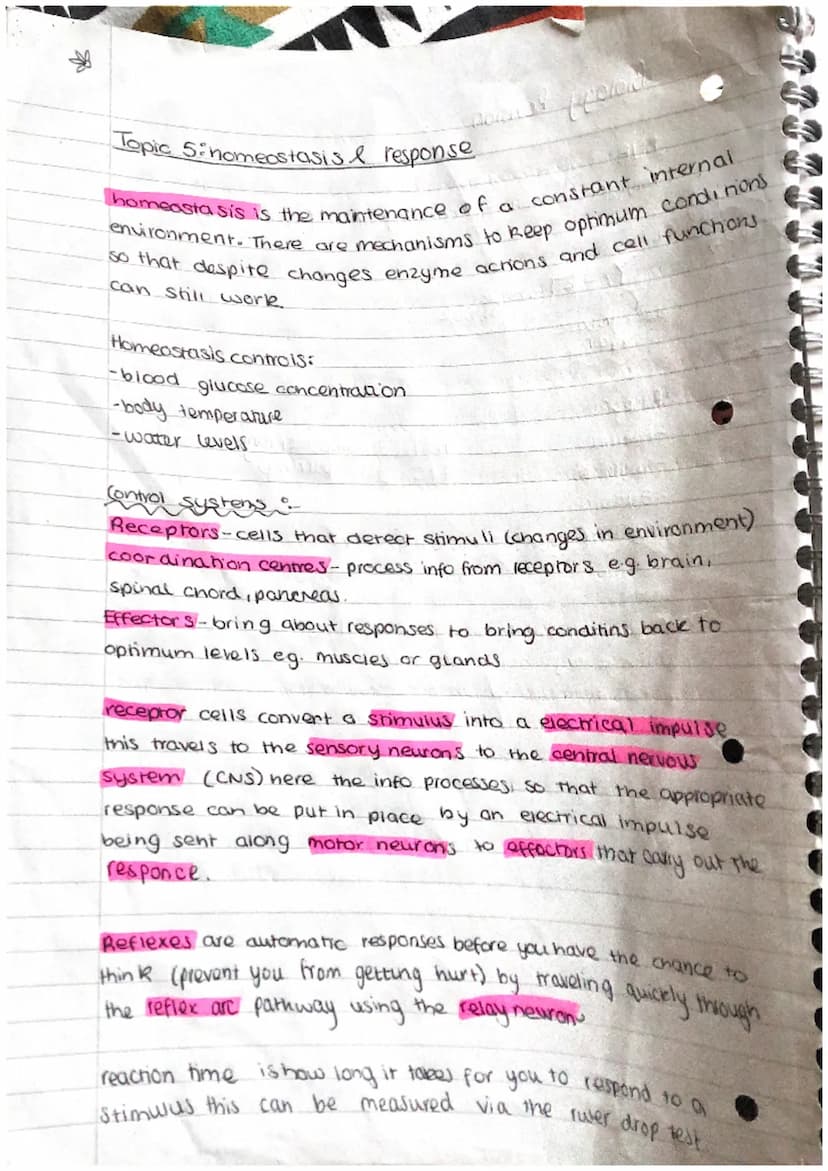 Topic 5: homeostasis & response
homeostasis is the maintenance of a constant internal
environment. There are mechanisms to keep optimum conditions
so that despite changes enzyme actions and cell functions
can still work.
Homeostasis controls:
-blood glucose concentration
-body temperature
-water levels
Control systems :-
Receptors-cells that detect stimuli (changes in environment)
coordination centres- process info from receptors e.g. brain,
spinal chord, pancreas.
Effectors-bring about responses to bring conditins back to
optimum levels eg. muscles or glands
receptor cells convert a stimulus into a electrical impulse
this travels to the sensory neurons to the central nervous
system (CNS) here the info processes, so that the appropriate
response can be put in place by an electrical impulse
being sent along motor neurons to effectors that carry out the
responce.
Reflexes are automatic responses before you have the chance to
think (prevent you from getting hurt) by traveling quickly through
the reflex arc pathway using the relay neuron
reaction time is how long it takes for you to respond to a
stimulus this can be measured via the ruler drop test